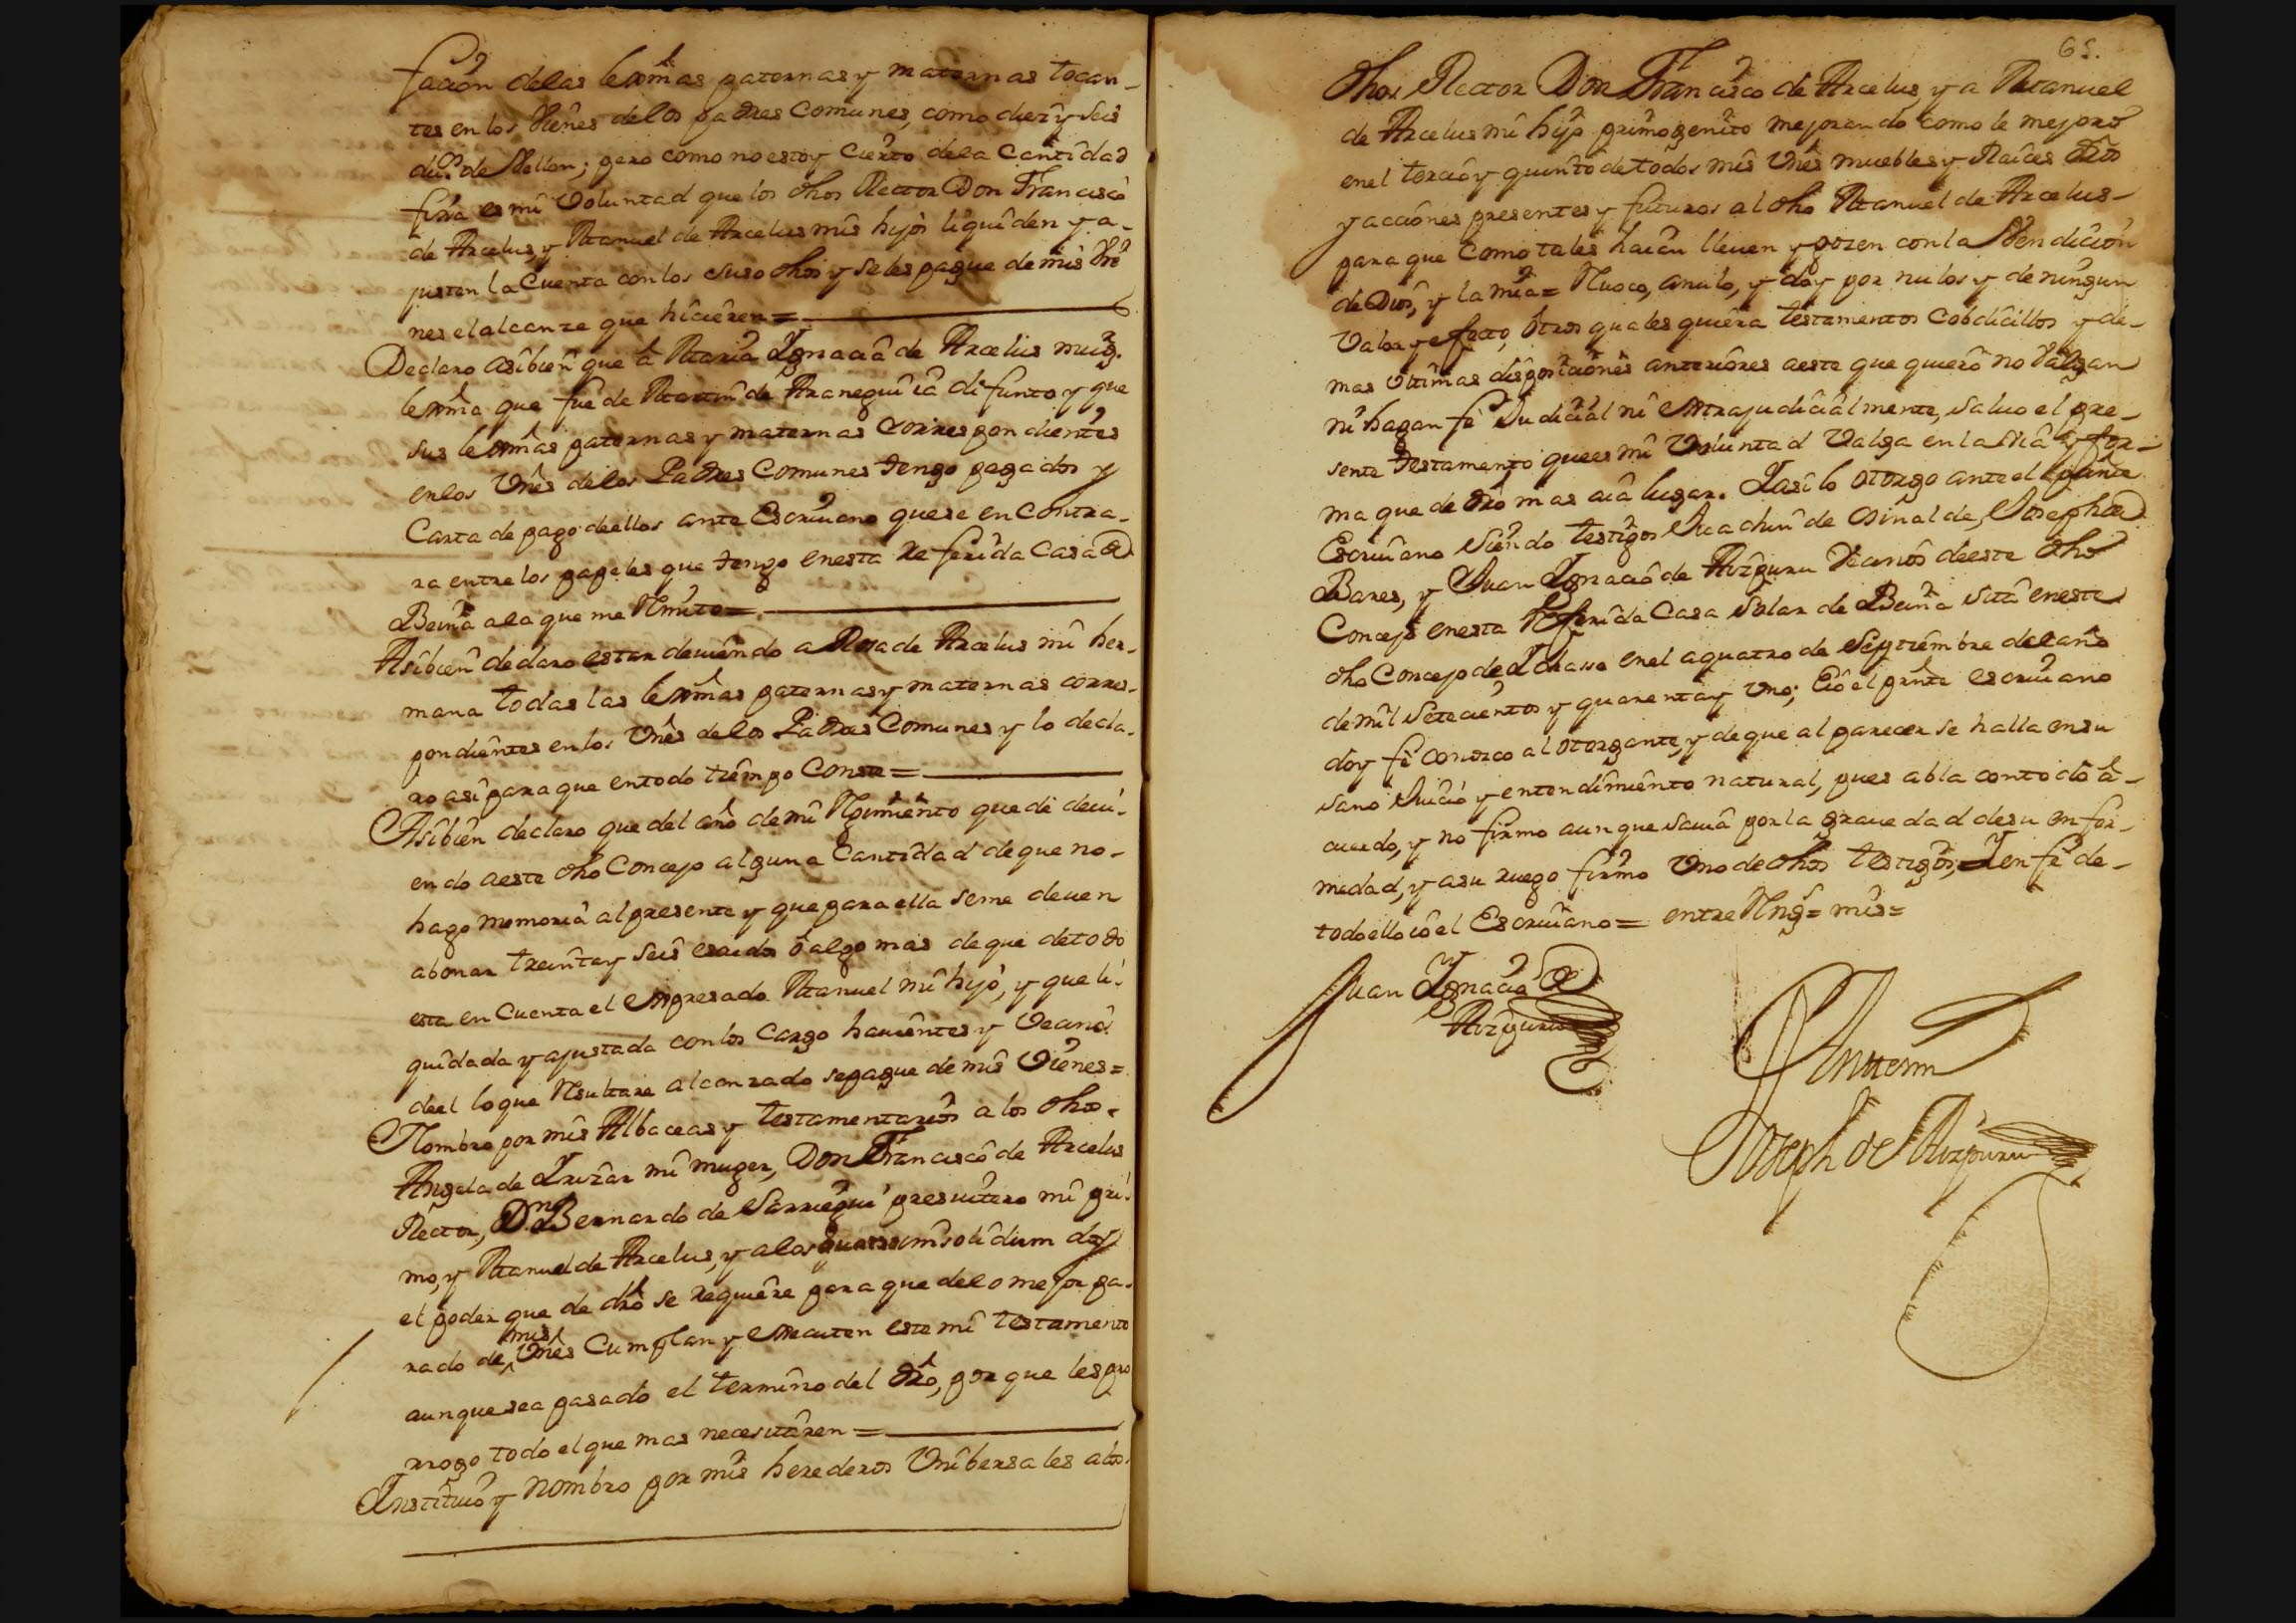 facion delas lexmas paternas y maternas tocan-
tes en los Vienes delos padres Comunes, como diez y seis
du.os de Vellon; pero como no estoy cierto dela Cantidad
fixa es mi Voluntad que los dhos Rector Don Francisco
de Arcelus, y Manuel de Arcelus mis hijos liquiden y a-
justen la Cuenta con los suso dhos y se les pague de mis Vie
nes el alcanze que hicieren =
Declaro asibien que a Maria Ignacia de Arcelus mug.r
lexma que fue de Martin de Araneguîa difunto y que
sus lexmas paternas y maternas correspondientes
en los Vnes delos Padres Comunes tengo pagados y
Carta de pago de ellos ante Escriuano que se encontra-
ra entre los papeles que tengo en esta referida Casa de
Beiña ala que me Rmito =
Asibien declaro estar deuiendo a Rosa de Arcelus mi her-
mana todas las lexmas paternas y maternas corres-
pondientes en los Vnes delos Padres Comunes y lo decla-
ro asi para que en todo tiempo Conste =
Asibien declaro que del año de mi Rximiento que de deui-
endo a este dho Concejo alguna Cantidad de que no-
hago memoria al presente y que para ella se me deuen
abonar treinta y seis escudos ô algo mas de que de todo
esta en Cuenta el expresado Manuel mi hijo, y que li-
quidada y ajustada con los Cargo hauientes y Vecinos
de el lo que Rsultare alcanzado se pague de mis Vienes =
Nombro por mis Albaceas y testamentarios a los dhos.
Angela de Irizar mi muger, Don Francisco de Arcelus
Rector, D.n Bernardo de Sarriegui presuitero mi pri-
mo, y Manuel de Arcelus, y a los quales in solidum doy
el poder que de dro se requiere para que delo mejor pa-
mis
rado de Vnes Cumplan y executen este mi testamento
aunque sea pasado el termino del dro, por que les pro
rrogo todo el que mas necesitaren =
Instituio y nombro por mis herederos Vnibersales a los
65.
dhos Rector Don Francisco de Arcelus, y a Manuel
de Arcelus mi hijo primogenito mejorando como le mejoro
en el tercio y quinto de todos mis Vnes muebles y Raices dro
y acciones presentes y futuros al dho Manuel de Arcelus-
para que como tales haian lleuen y gozen con la Vendicion
de Dios, y la mia = Ruoco, anulo, y doy por nulos y de ningun
Valor y efecto, ôtros quales quiera testamentos cobdicillos y de-
mas vltimas disposiciones anteriores a este que quiero no Valgan
ni hagan fè Judicial ni extrajudicialmente, saluo el pre-
sente testamento que es mi Voluntad Valga en la Via y for-
ma que de dro mas aia lugar. Y asi lo otorgo ante el prnte
Escriuano siendo testigos Juachin de Osinalde, Joseph de
Bares, y Juan Ignacio de Aizpuru Vecinos de este dho
Concejo en esta Referida Casa Solar de Beiña sita en este
dho Concejo de Ichasso en el a quatro de Septiembre del año
de mil Setecientos y quarenta y vno; E io el prnte escriuano
doy fè conozco al otorgante, y de que al parecer se halla en su
sano Juicio y entendimiento natural, pues abla con todo a-
cuerdo, y no firmo aunque sauia por la grauedad de su enfer-
medad, y a su ruego firmo Vno de dhos testigos, Y en fè de-
todo ello io el Escriuano = entre Rngs = mis =
Juan Ignacio de
Aizpuru
Antemi
Joseph de Aizpuru